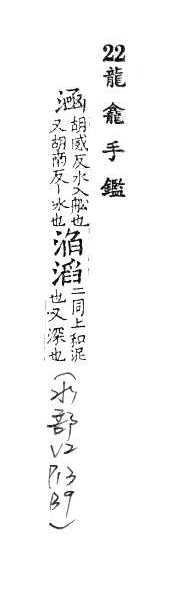 22 龍龕手鑑
涵 胡感反水入船也
又胡南反丨水也
淊滔 二同上和泥
也又深也
（水部 V2
P13
B9）